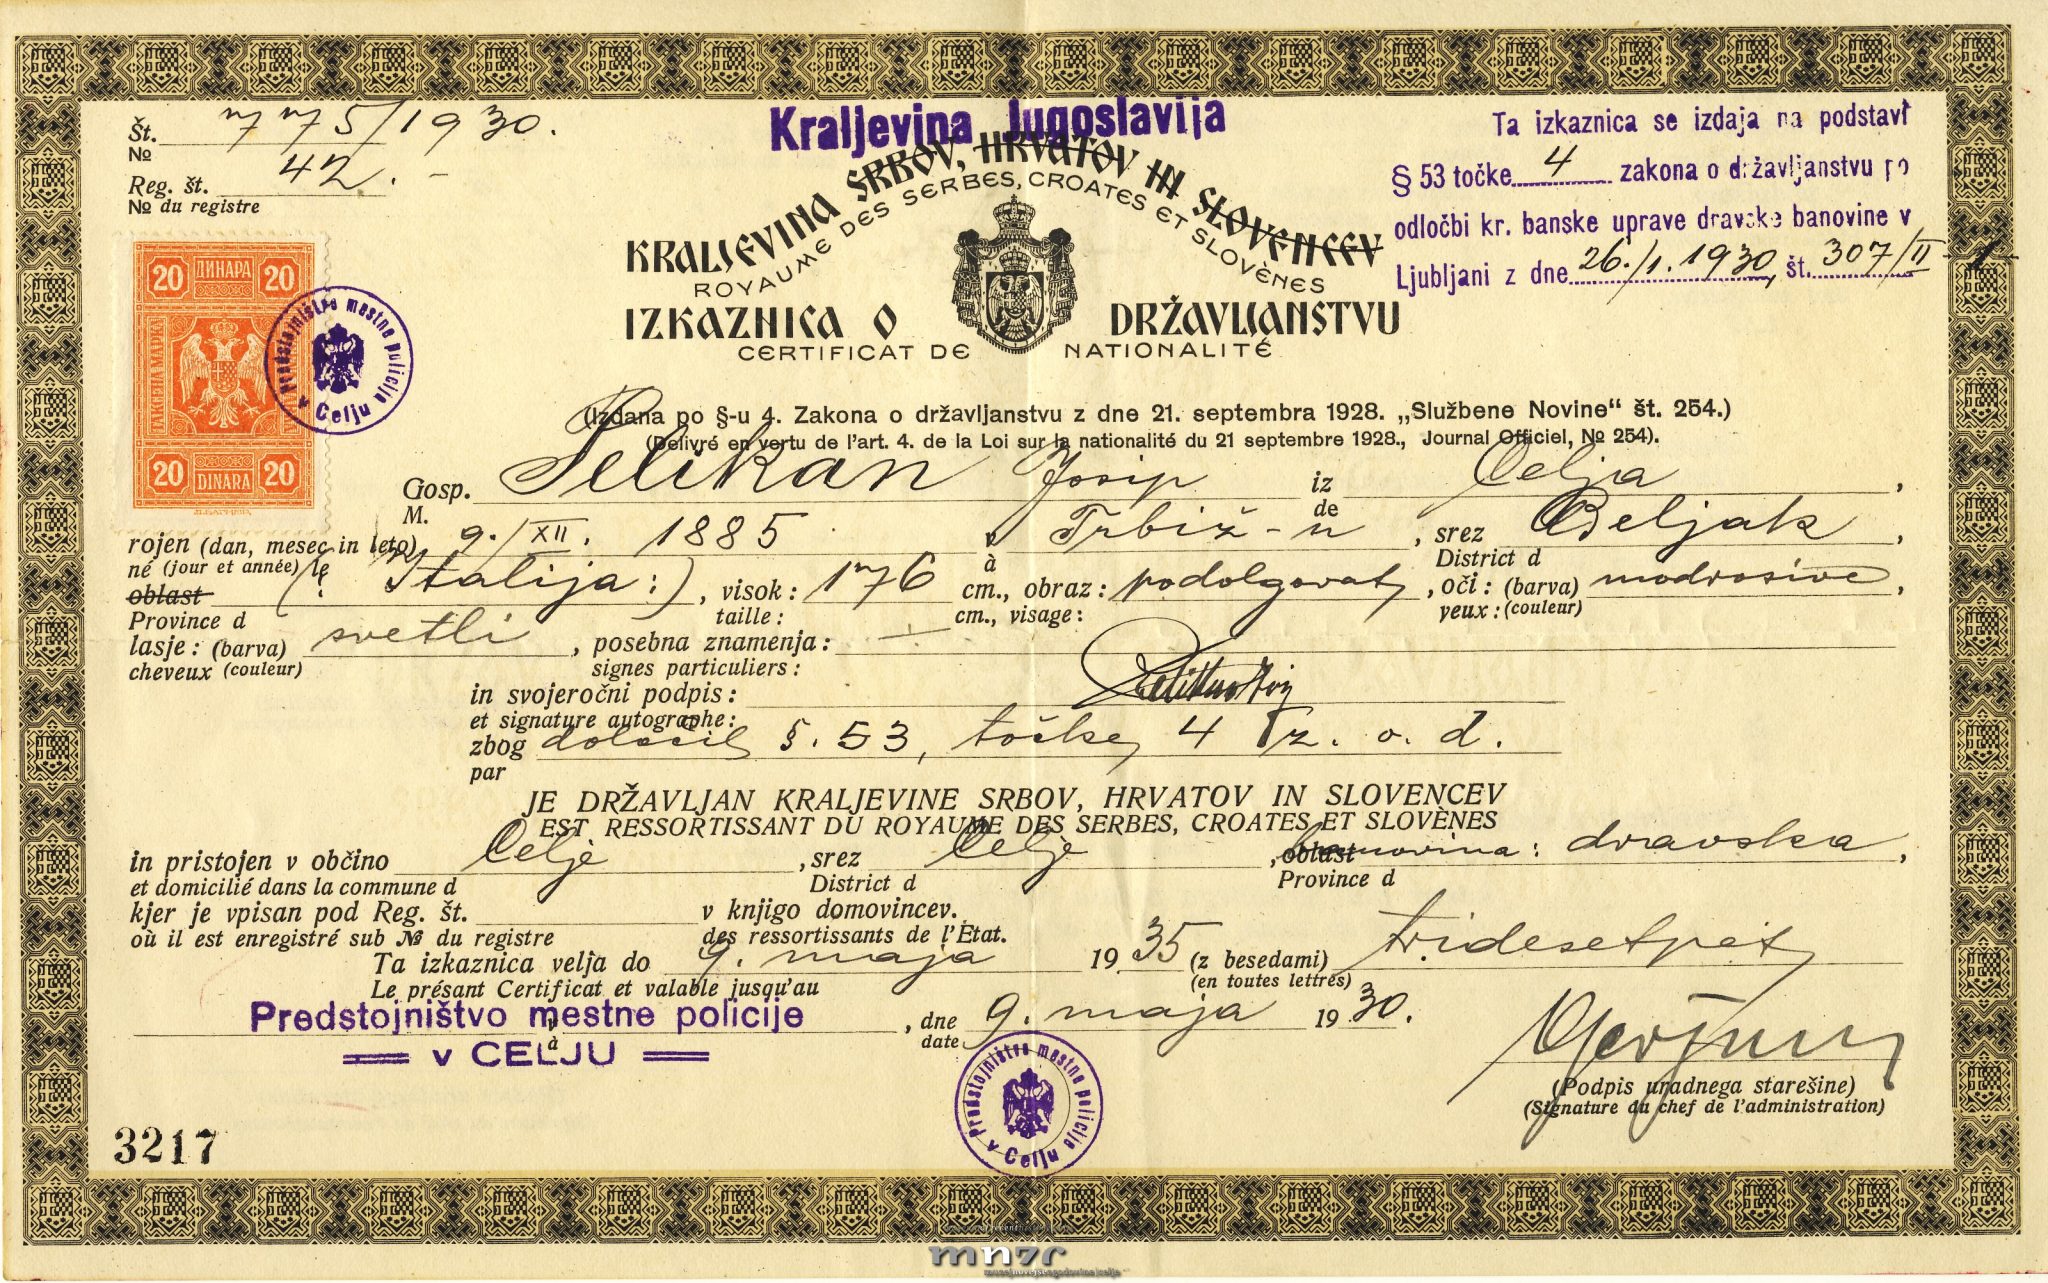 Št. 775/1930.
No
Reg. št. 42.-
No du registre
Kraljevina Jugoslavija
KRALJEVINA SRBOV, HRVATOV IN SLOVENCEV
ROYAUME DES SERBES, CROATES ET SLOVÈNES
IZKAZNICA O DRŽAVLJANSTVU
CERTIFICAT DE NATIONALITÉ
Ta izkaznica se izdaja na podstavi
§ 53 točke 4 zakona o državljanstvu po
odločbi kr. banske uprave dravske banovine v
Ljubljani z dne 26./1. 1930, št. 307/II-1-
20 ДИНАРА 20
ТАКСЕНА МАРКА
20 DINARA 20
Predstojništvo mestne policije v Celju
(Izdana po §-u 4. Zakona o državljanstvu z dne 21. septembra 1928. „Službene Novine“ št. 254.)
(Délivré en vertu de l'art. 4. de la Loi sur la nationalité du 21 septembre 1928., Journal Officiel, No 254).
Gosp. Pelikan Josip iz Celja,
M. de
rojen (dan, mesec in leto) 9./XII. 1885 v Trbiž-u, srez Beljak,
né (jour et année) le à District d
oblast (: Italija:), visok: 176 cm., obraz: podolgovat, oči: (barva) modrosive,
Province d taille: cm., visage: yeux: (couleur)
lasje: (barva) svetli, posebna znamenja: —
cheveux (couleur) signes particuliers:
in svojeročni podpis:
et signature autographe:
zbog določil §. 53, točke 4 z. o. d.
par
JE DRŽAVLJAN KRALJEVINE SRBOV, HRVATOV IN SLOVENCEV
EST RESSORTISSANT DU ROYAUME DES SERBES, CROATES ET SLOVÈNES
in pristojen v občino Celje, srez Celje, oblast banovina: dravska,
et domicilié dans la commune d District d Province d
kjer je vpisan pod Reg. št. v knjigo domovincev.
où il est enregistré sub No du registre des ressortissants de l'État.
Ta izkaznica velja do 9. maja 1935 (z besedami) tridesetpet
Le présant Certificat et valable jusqu'au (en toutes lettres)
Predstojništvo mestne policije v, dne 9. maja 1930.
v CELJU à date
Predstojništvo mestne policije v Celju
(Podpis uradnega starešine)
(Signature du chef de l'administration)
3217
mnzc
muzej novejše zgodovine celje